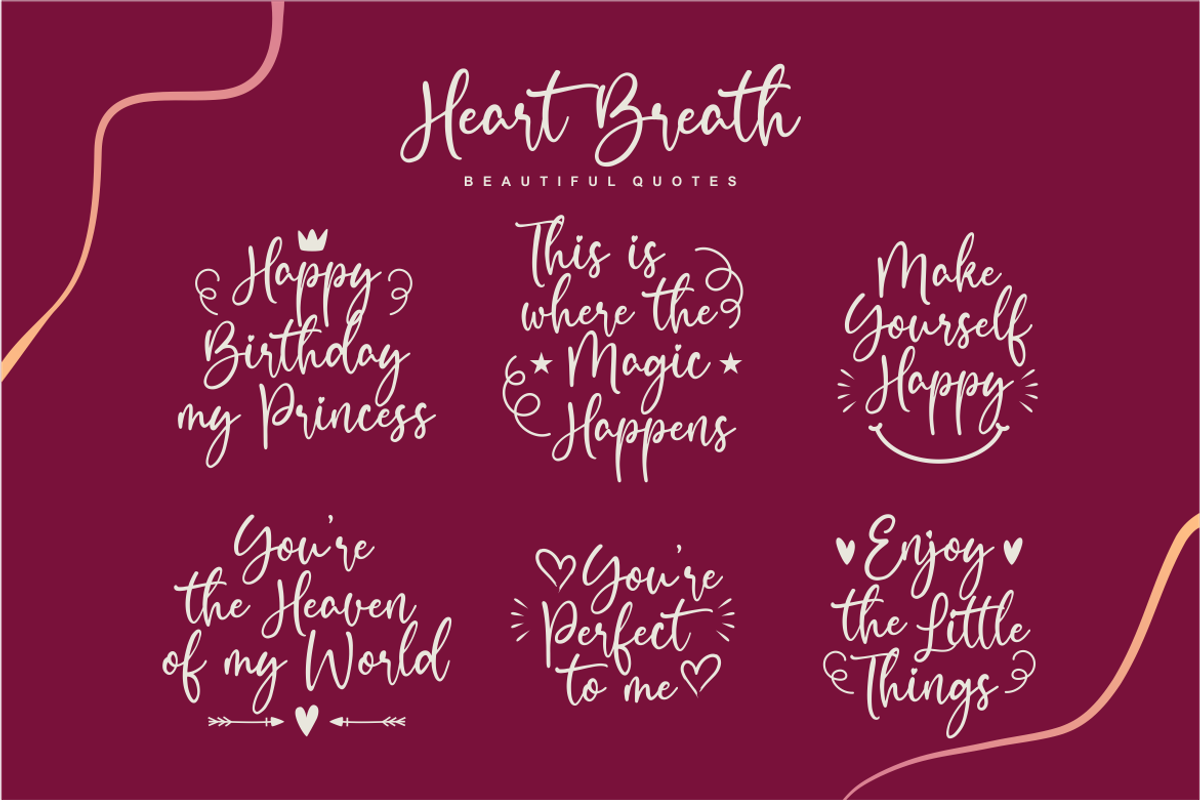 Heart Breath
BEAUTIFUL QUOTES
Happy
Birthday
my Princess
This is
where the
Magic
Happens
Make
Yourself
Happy
You're
the Heaven
of my World
You're
Perfect
to me
Enjoy
the Little
Things